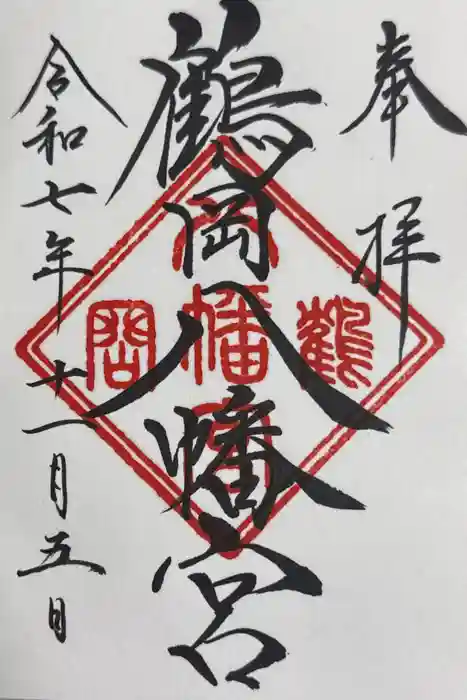 奉拝
鶴岡八幡宮
令和七年十一月五日